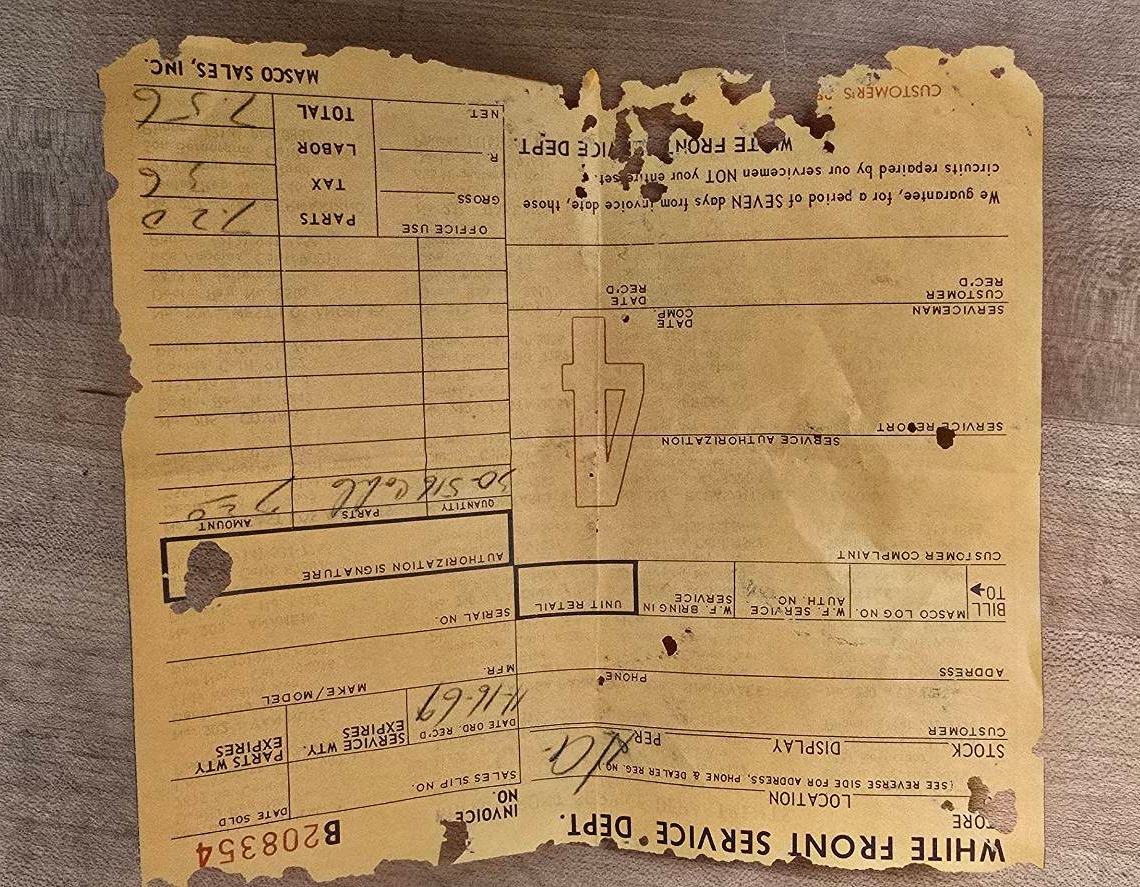 WHITE FRONT SERVICE DEPT.
INVOICE NO. B208354
LOCATION
(SEE REVERSE SIDE FOR ADDRESS, PHONE & DEALER REG. NO.)
SALES SLIP NO.
DATE SOLD
STOCK
DISPLAY
CUSTOMER
PER
DATE ORD. REC'D
11-16-69
SERVICE WTY. EXPIRES
PARTS WTY EXPIRES
ADDRESS
PHONE
MFR.
MAKE/MODEL
BILL TO
MASCO LOG NO.
W.F. SERVICE AUTH. NO.
W.F. BRING IN SERVICE
UNIT RETAIL
SERIAL NO.
CUSTOMER COMPLAINT
AUTHORIZATION SIGNATURE
QUANTITY
PARTS
AMOUNT
SERVICE REPORT
SERVICE AUTHORIZATION
4
SERVICEMAN
DATE COMP.
CUSTOMER REC'D
DATE REC'D
We guarantee, for a period of SEVEN days from invoice date, those
circuits repaired by our servicemen NOT your entire set.
WHITE FRONT SERVICE DEPT.
OFFICE USE
GROSS
R.
NET
PARTS 7.20
TAX 36
LABOR
TOTAL 7.56
CUSTOMER'S
MASCO SALES, INC.